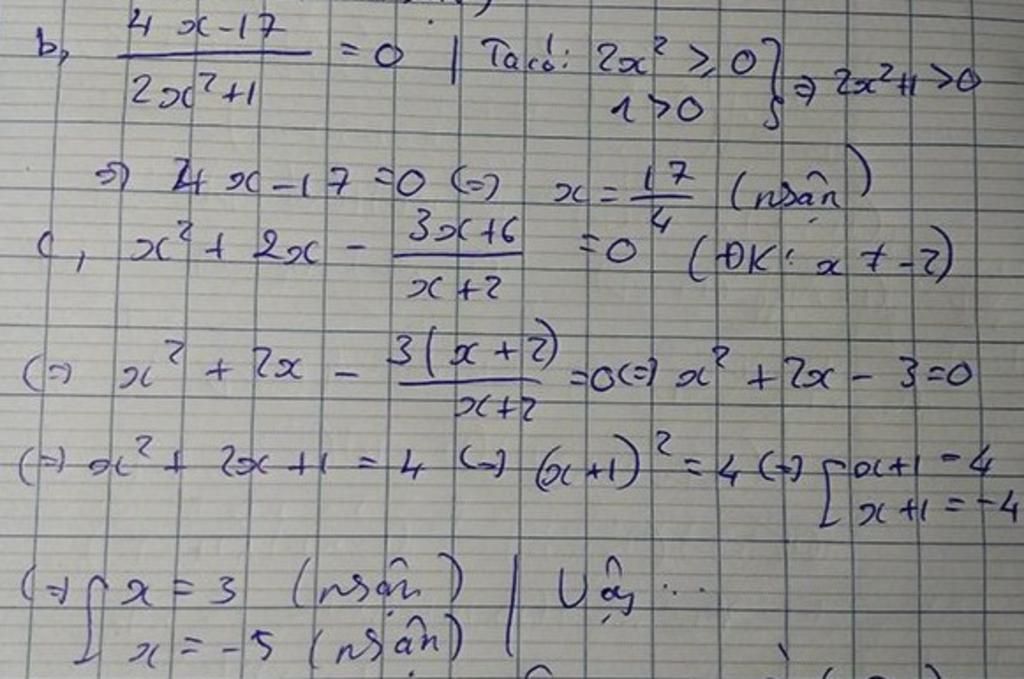 b, (4x-17)/(2x²+1) = 0 | Ta có: 2x² ≥ 0 } ⇒ 2x²+1 > 0
1 > 0
⇒ 4x-17 =0 (=) x = 17/4 (nhận)
c, x² + 2x - (3x+6)/(x+2) = 0 (ĐK: x ≠ -2)
(=) x² + 2x - 3(x+2)/(x+2) =0 (=) x² + 2x - 3 = 0
(=) x² + 2x + 1 = 4 (=) (x+1)² = 4 (=) [ x+1 = 4
x+1 = -4
(=) [ x = 3 (nhận) | Vậy ...
x = -5 (nhận)